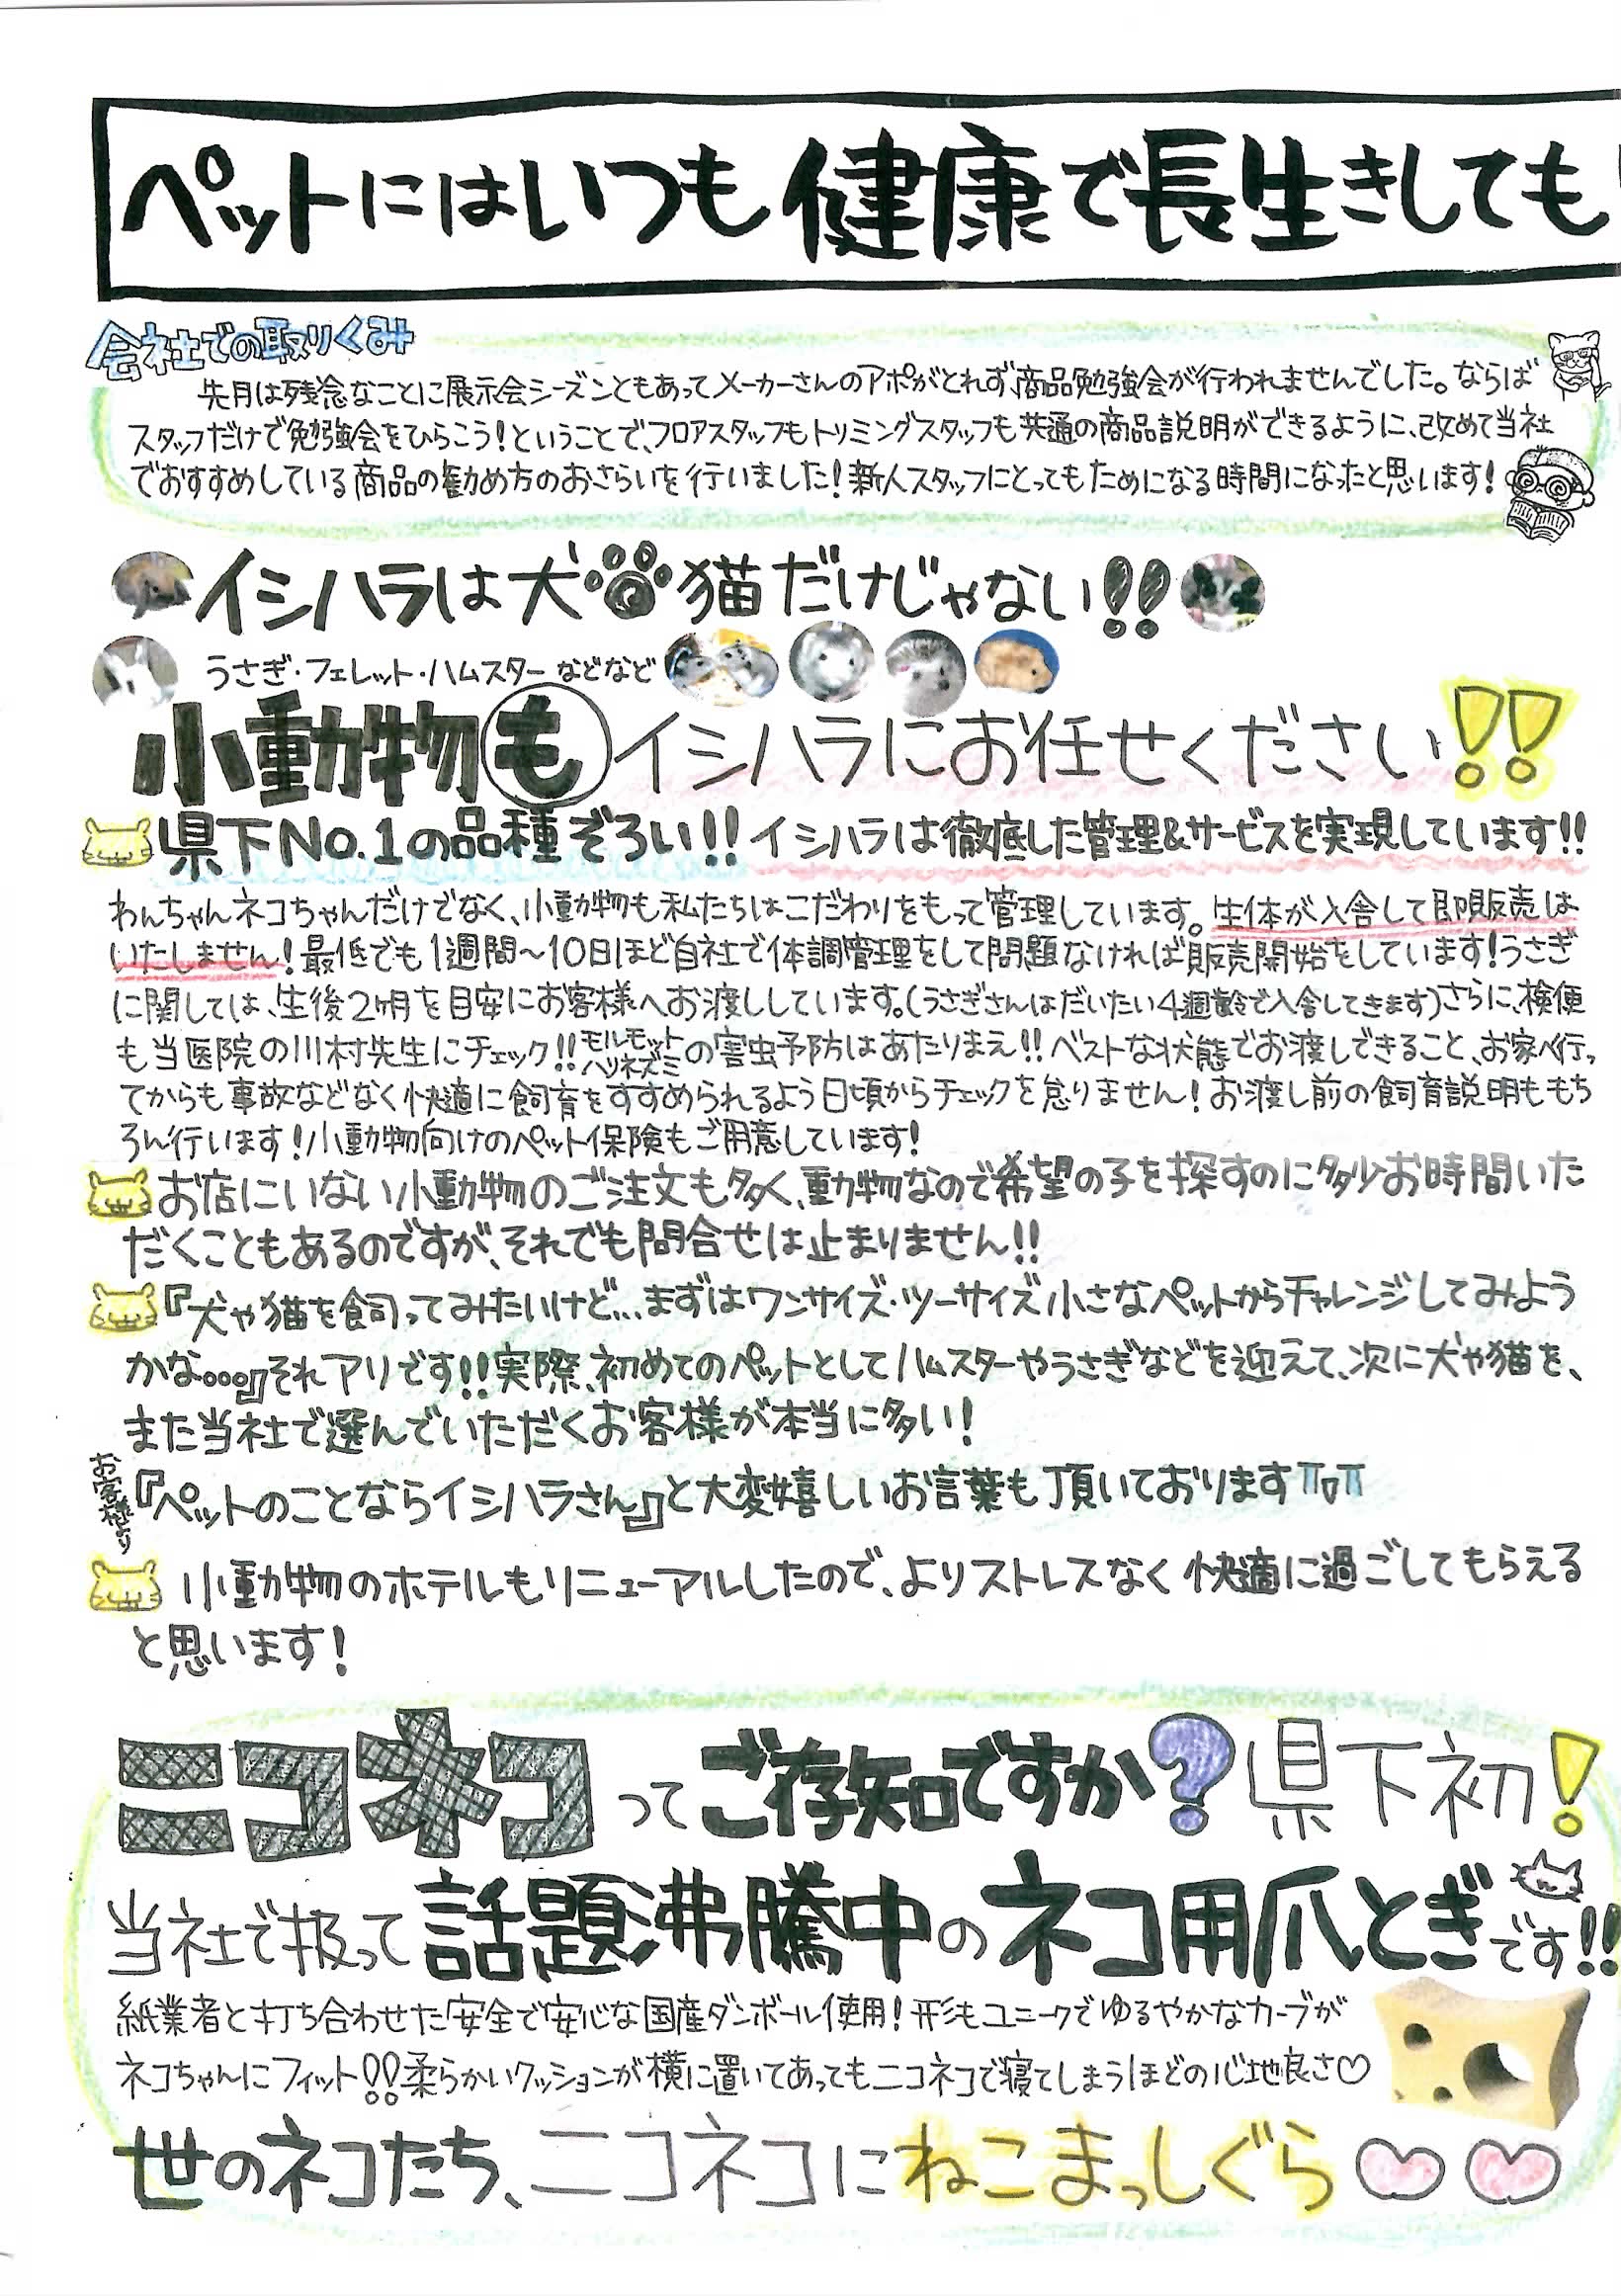 ペットにはいつも健康で長生きしても
会社での取りくみ
先月は残念なことに展示会シーズンともあってメーカーさんのアポがとれず、商品勉強会が行われませんでした。ならば
スタッフだけで勉強会をひらこう！ということで、フロアスタッフもトリミングスタッフも共通の商品説明ができるように、改めて当社
でおすすめしている商品の勧め方のおさらいを行いました！新人スタッフにとってもためになる時間になったと思います！
イシハラは犬猫だけじゃない!!
うさぎ・フェレット・ハムスターなどなど
小動物もイシハラにお任せください!!
県下No.1の品種ぞろい!!イシハラは徹底した管理&サービスを実現しています!!
わんちゃんネコちゃんだけでなく、小動物も私たちはこだわりをもって管理しています。生体が入舎して即販売は
いたしません！最低でも1週間～10日ほど自社で体調管理をして問題なければ販売開始をしています！うさぎ
に関しては、生後2ヶ月を目安にお客様へお渡ししています。（うさぎさんはだいたい4週齢で入舎してきます）さらに、検便
も当医院の川村先生にチェック!!モルモットハリネズミの害虫予防はあたりまえ!!ベストな状態でお渡しできること、お家へ行っ
てからも事故などなく快適に飼育をすすめられるよう日頃からチェックを怠りません！お渡し前の飼育説明ももち
ろん行います！小動物向けのペット保険もご用意しています！
お店にいない小動物のご注文も多く、動物なので希望の子を探すのに多少お時間いた
だくこともあるのですが、それでも問合せは止まりません!!
『犬や猫を飼ってみたいけど...まずはワンサイズ・ツーサイズ小さなペットからチャレンジしてみよう
かな。。。』それアリです!!実際、初めてのペットとしてハムスターやうさぎなどを迎えて、次に犬や猫を、
また当社で選んでいただくお客様が本当に多い！
お客様より『ペットのことならイシハラさん』と大変嬉しいお言葉も頂いておりますToT
小動物のホテルもリニューアルしたので、よりストレスなく快適に過ごしてもらえる
と思います！
ニコネコってご存知ですか？県下初！
当社で扱って話題沸騰中のネコ用爪とぎです!!
紙業者と打ち合わせた安全で安心な国産ダンボール使用！形もユニークでゆるやかなカーブが
ネコちゃんにフィット!!柔らかいクッションが横に置いてあってもニコネコで寝てしまうほどの心地良さ♡
世のネコたち、ニコネコにねこまっしぐら♡♡